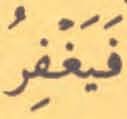 فَيَغْفِرُ